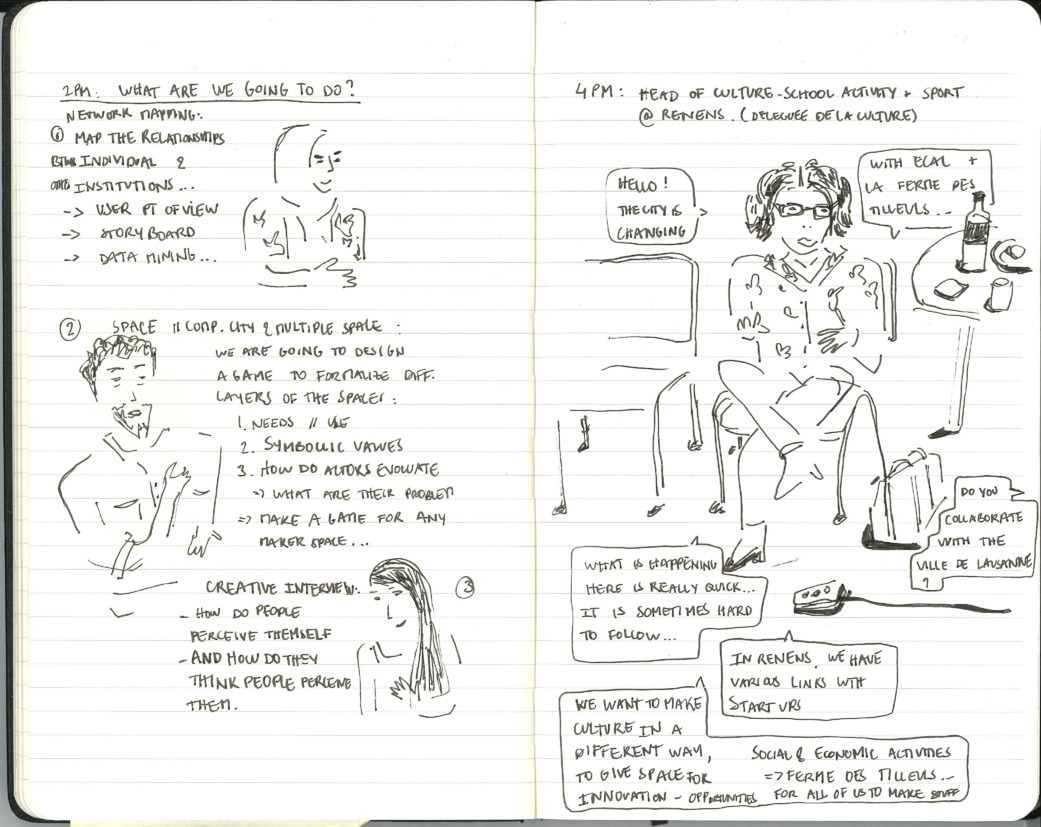 2PM: WHAT ARE WE GOING TO DO?
NETWORK MAPPING:
① MAP THE RELATIONSHIPS
BTW INDIVIDUAL &
OTHER INSTITUTIONS...
-> USER PT OF VIEW
-> STORYBOARD
-> DATA MINING...
② SPACE // COMP. CITY & MULTIPLE SPACE :
WE ARE GOING TO DESIGN
A GAME TO FORMALIZE DIFF.
LAYERS OF THE SPACES :
1. NEEDS // USE
2. SYMBOLIC VALUES
3. HOW DO ACTORS EVOLUATE
=> WHAT ARE THEIR PROBLEM
=> MAKE A GAME FOR ANY
MAKER SPACE...
CREATIVE INTERVIEW:. ③
- HOW DO PEOPLE
PERCEIVE THEMSELF
- AND HOW DO THEY
THINK PEOPLE PERCIEVE
THEM.
4PM: HEAD OF CULTURE-SCHOOL ACTIVITY + SPORT
@ RENENS. (DELEGUEE DE LA CULTURE)
HELLO!
THE CITY IS
CHANGING
WITH ECAL +
LA FERME DES
TILLEULS...
DO YOU
COLLABORATE
WITH THE
VILLE DE LAUSANNE
?
WHAT IS HAPPENING
HERE IS REALLY QUICK...
IT IS SOMETIMES HARD
TO FOLLOW...
IN RENENS, WE HAVE
VARIOUS LINKS WITH
START UPS
WE WANT TO MAKE
CULTURE IN A
DIFFERENT WAY,
TO GIVE SPACE FOR
INNOVATION - OPPORTUNITIES
SOCIAL & ECONOMIC ACTIVITIES
=> FERME DES TILLEULS...
FOR ALL OF US TO MAKE STUFF